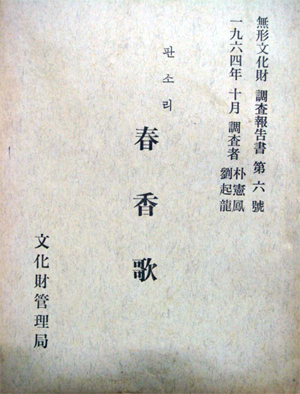 無形文化財 調査報告書 第六號
一九六四年 十月 調査者 朴憲鳳
劉起龍
판소리
春香歌
文化財管理局